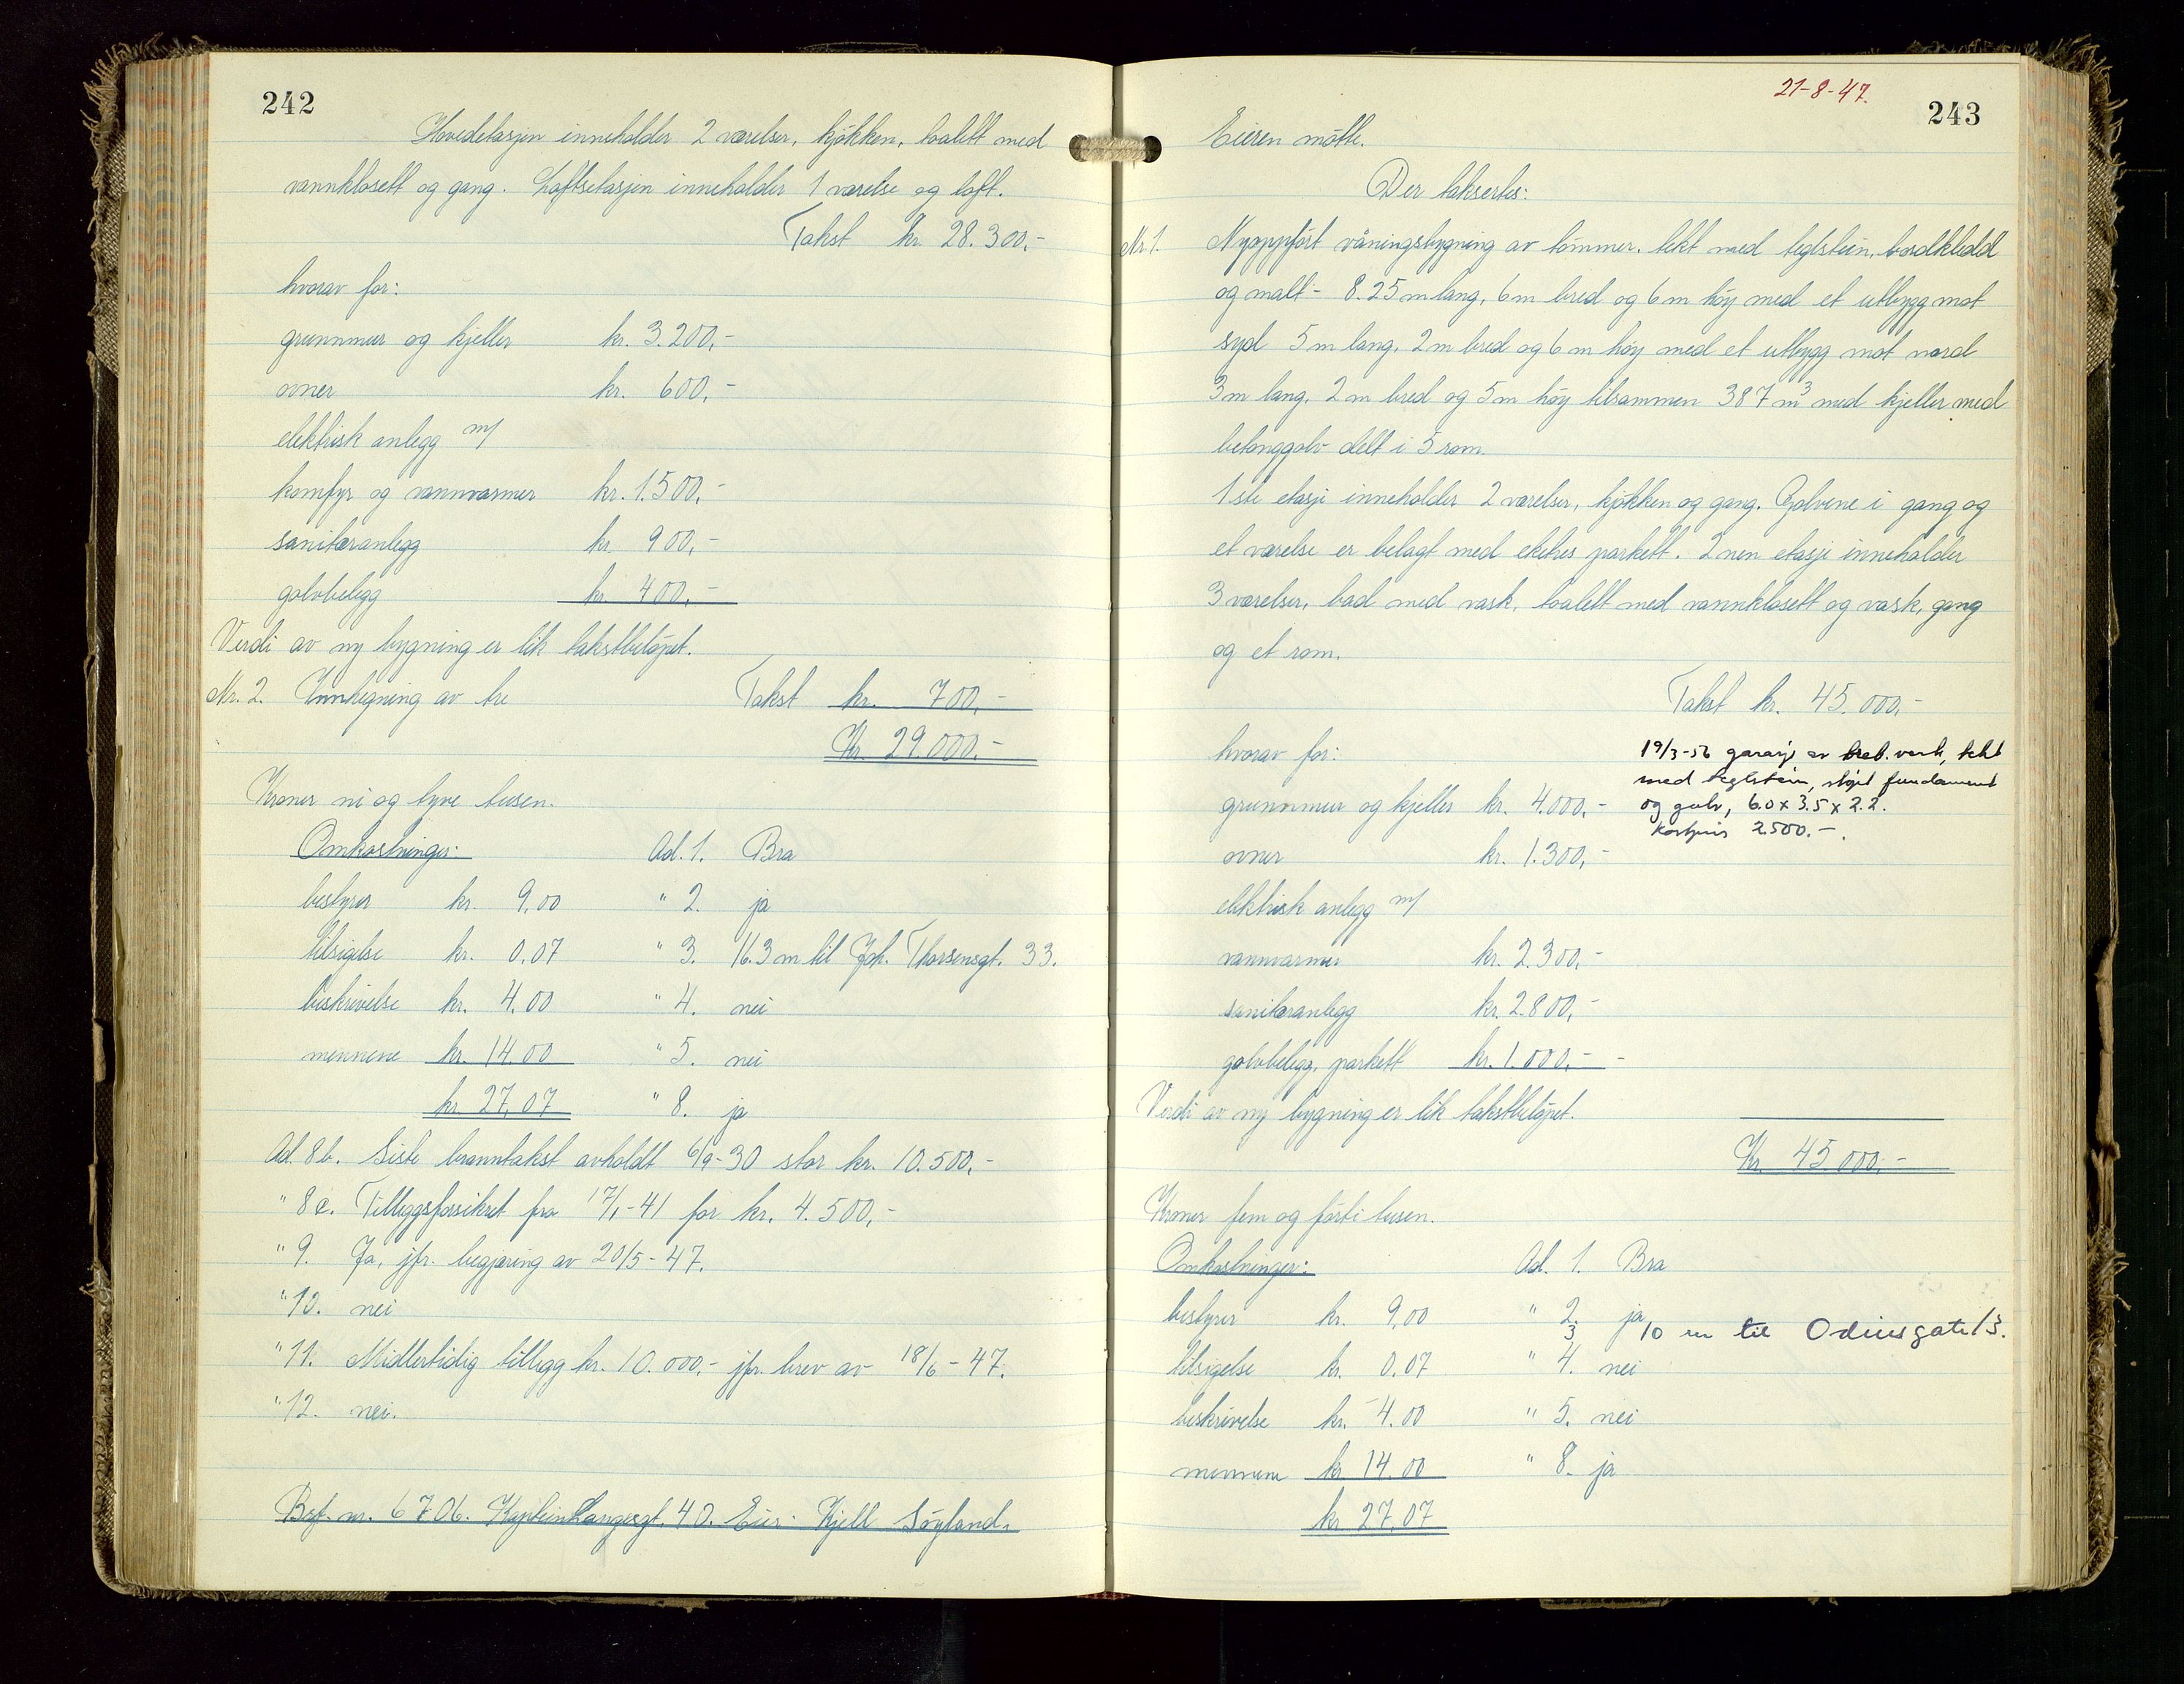 242
Hovedetasjen inneholder 2 værelser, kjøkken, toalett med
vannklosett og gang. Loftsetasjen inneholder 1 værelse og loft.
Takst kr. 28.300,-
hvorav for:
grunnmur og kjeller kr. 3.200,-
ovner kr. 600,-
elektrisk anlegg m/
komfyr og vannvarmer kr. 1.500,-
sanitæranlegg kr. 900,-
golvbelegg kr. 400,-
Verdi av ny bygning er lik takstbeløpet.
Nr. 2. Innhegning av tre Takst kr. 700,-
Kr. 29.000,-
Kroner ni og tyve tusen.
Omkostninger: Ad. 1. Bra
bestyrer kr. 9,00 " 2. ja
tilsigelse kr. 0,07 " 3. 16.3 m til Joh. Thorsensgt. 33.
beskrivelse kr. 4,00 " 4. nei
mennene kr. 14,00 " 5. nei
kr. 27,07 " 8. ja
Ad. 8b. Siste branntakst avholdt 6/9-30 stor kr. 10.500,-
" 8c. Tilleggsforsikret fra 17/1-41 for kr. 4.500,-
" 9. Ja, jfr. begjæring av 20/5-47.
" 10. nei
" 11. Midlertidig tillegg kr. 10.000,- jfr. brev av 18/6-47.
" 12. nei.
Brf. nr. 6706. Kaptein Langesgt. 40. Eier: Kjell Søyland.
21-8-47.
243
Eieren møtte.
Der taksertes:
Nr. 1. Nyoppført våningsbygning av tømmer, tekt med teglstein, bordkledd
og malt - 8.25 m lang, 6 m bred og 6 m høy med et utbygg mot
syd 5 m lang, 2 m bred og 6 m høy med et utbygg mot nord
3 m lang, 2 m bred og 5 m høy tilsammen 387 m³ med kjeller med
betonggolv delt i 5 rom.
1ste etasje inneholder 2 værelser, kjøkken og gang. Golvene i gang og
et værelse er belagt med eketres parkett. 2nen etasje inneholder
3 værelser, bad med vask, toalett med vannklosett og vask, gang
og et rom.
Takst kr. 45.000,-
hvorav for:
19/3-56 garasje av bind. verk, tekt
med teglstein, støpt fundament
og golv, 6.0 x 3.5 x 2.2.
Kostpris 2.500.-.
grunnmur og kjeller kr. 4.000,-
ovner kr. 1.300,-
elektrisk anlegg m/
vannvarmer kr. 2.300,-
sanitæranlegg kr. 2.800,-
golvbelegg, parkett kr. 1.000,-
Verdi av ny bygning er lik takstbeløpet.
Kr. 45.000,-
Kroner fem og førti tusen.
Omkostninger: Ad. 1. Bra
bestyrer kr. 9,00 " 2. ja
3 10 m til Odinsgate 13.
tilsigelse kr. 0,07 " 4. nei
beskrivelse kr. 4,00 " 5. nei
mennene kr 14,00 " 8. ja
kr 27,07